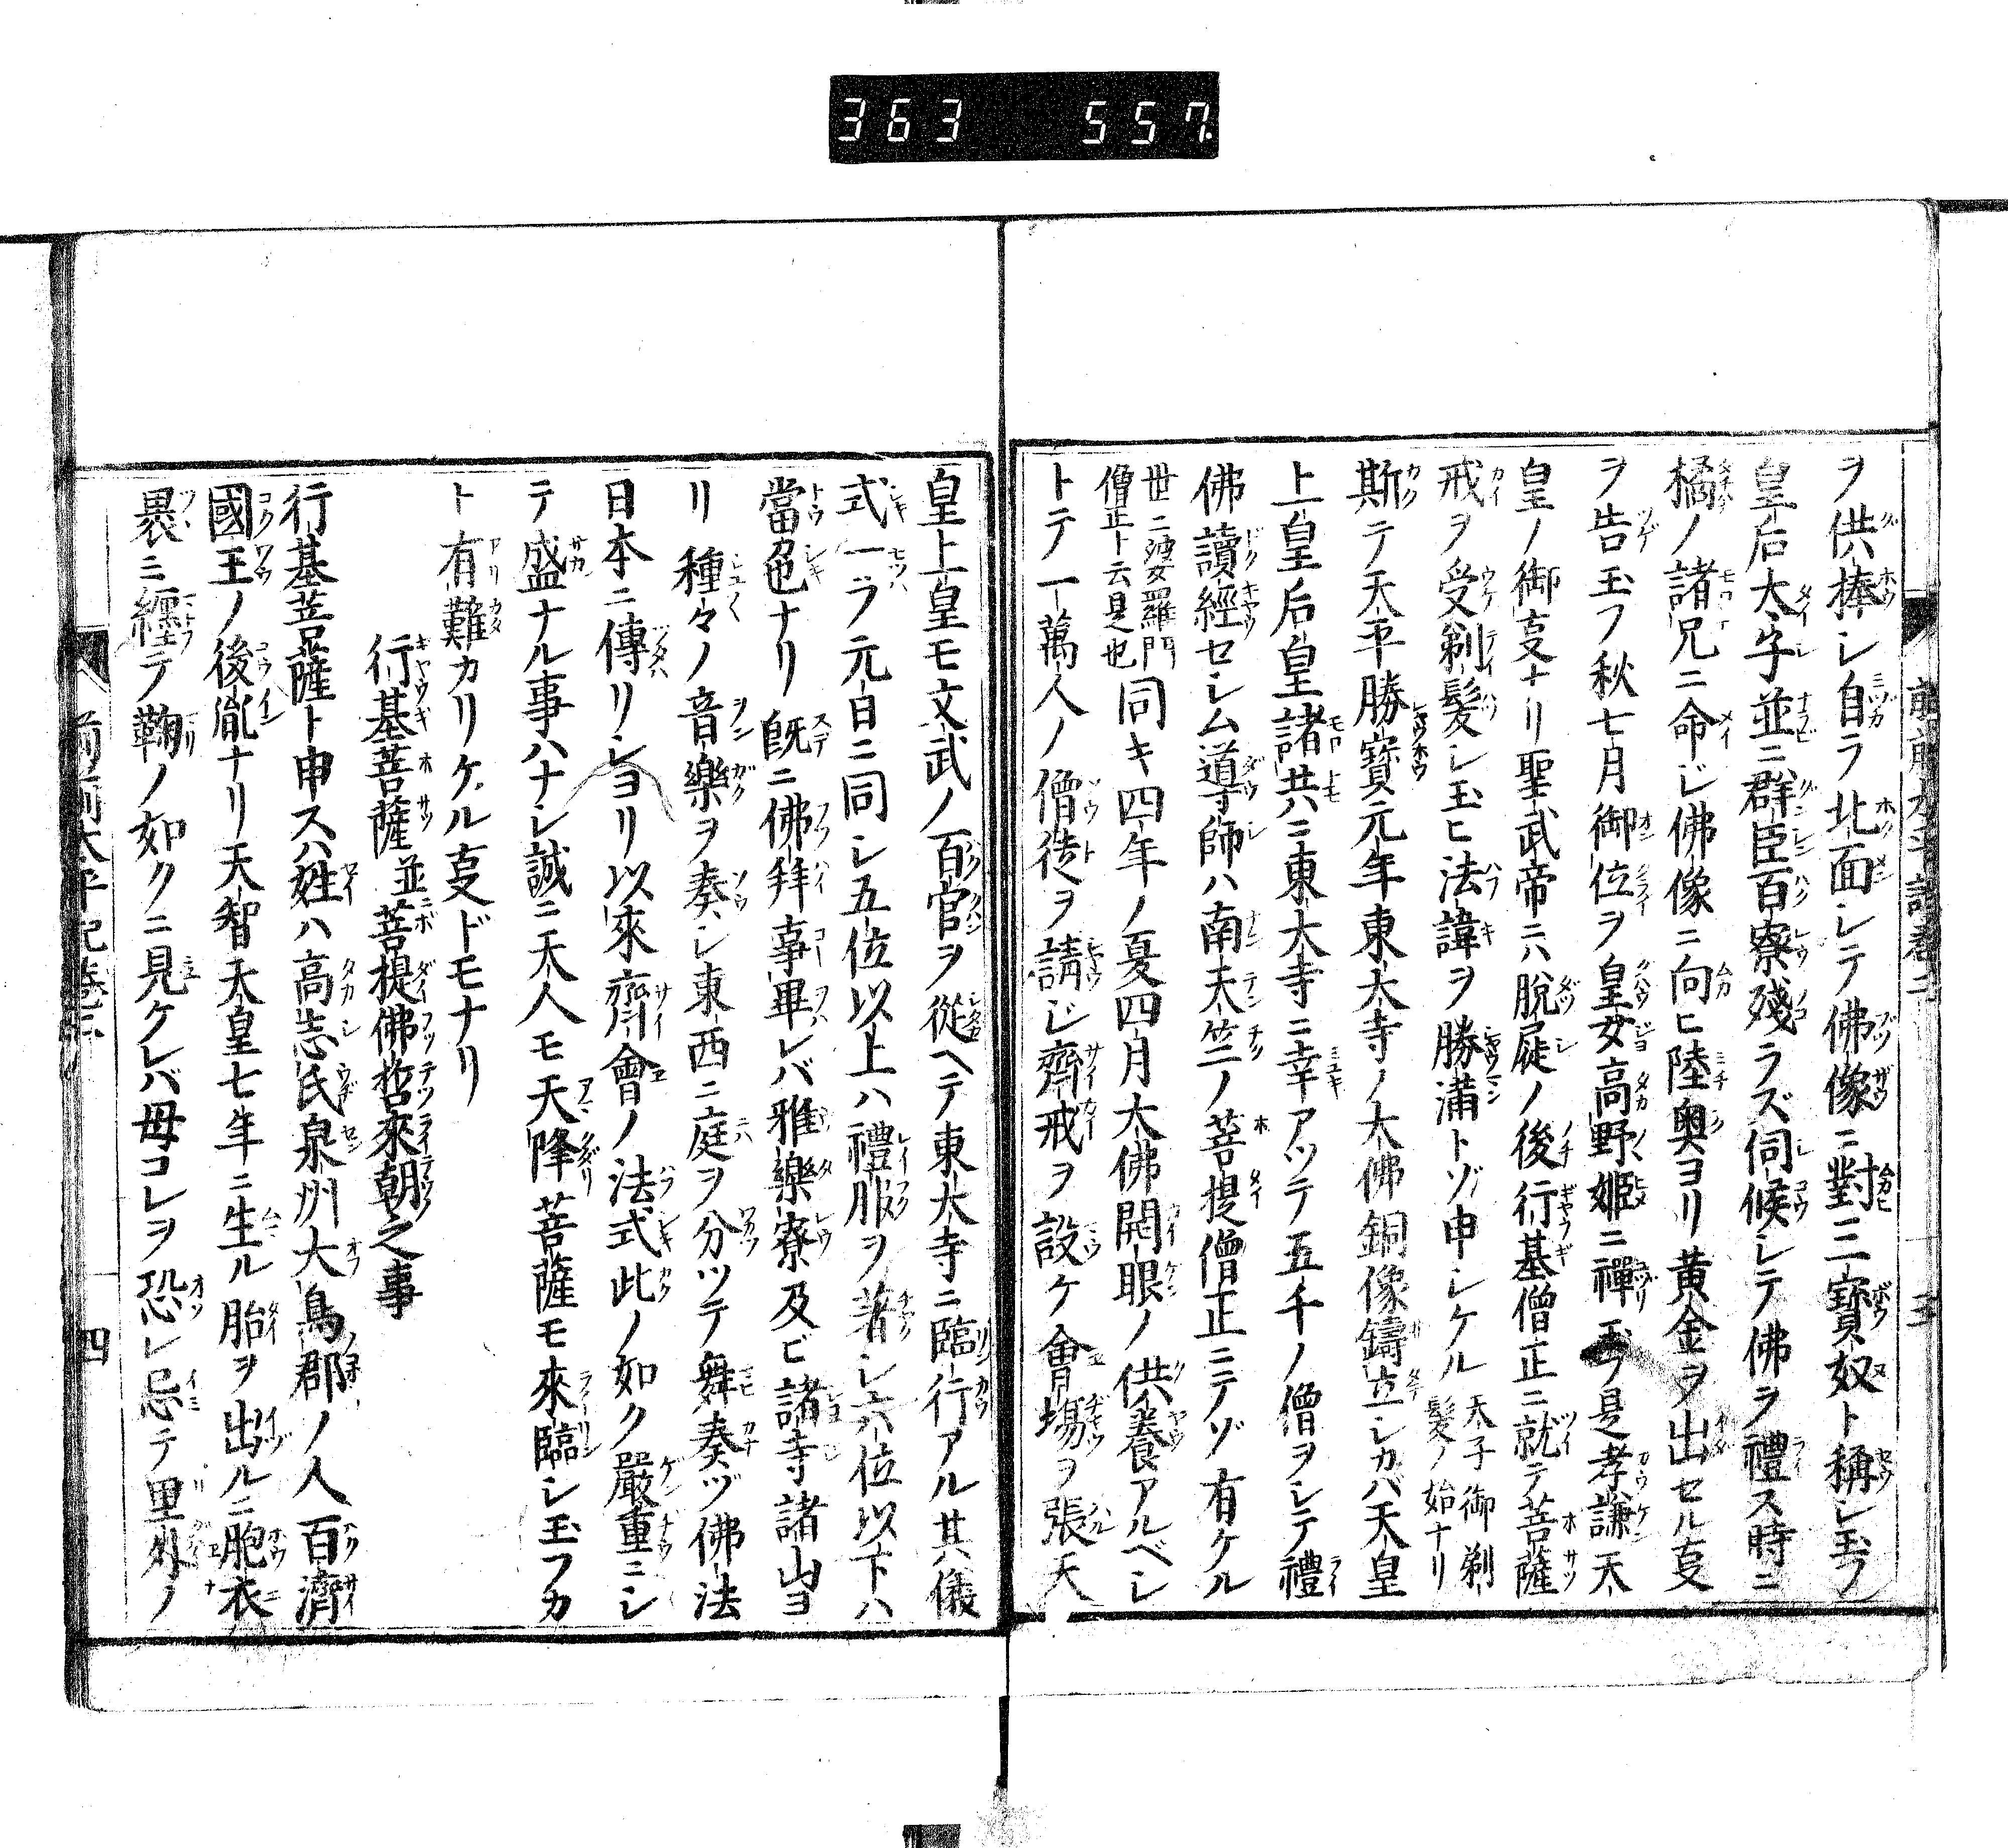 363 557.
ヲ供捧シ自ラ北面シテ佛像ニ對三寶奴ト稱シ玉フ
皇后太子並ニ群臣百寮殘ラズ伺候シテ佛ヲ禮ス時ニ
橘ノ諸兄ニ命ジ佛像ニ向ヒ陸奥ヨリ黄金ヲ出セル㕝
ヲ告玉フ秋七月御位ヲ皇女高野姫ニ禪玉フ是孝謙天
皇ノ御㕝ナリ聖武帝ニハ脱屣ノ後行基僧正ニ就テ菩薩
戒ヲ受剃髪シ玉ヒ法諱ヲ勝滿トゾ申シケル天子御剃髪ノ始ナリ
斯テ天平勝寳元年東大寺ノ大佛銅像鑄立シカバ天皇
上皇后皇諸共ニ東大寺ニ幸アツテ五千ノ僧ヲシテ禮
佛讀經セシム導師ハ南天竺ノ菩提僧正ニテゾ有ケル
世ニ波女羅門僧正ト云是也同キ四年ノ夏四月大佛開眼ノ供養アルベシ
トテ一萬人ノ僧徒ヲ請ジ齊戒ヲ設ケ會塲ヲ張天
皇上皇モ文武ノ百官ヲ從ヘテ東大寺ニ臨行アル其儀
式一ラ元日ニ同シ五位以上ハ禮服ヲ著シ六位以下ハ
當色ナリ既ニ佛拜事畢レバ雅樂寮及ビ諸寺諸山ヨ
リ種々ノ音樂ヲ奏シ東西ニ庭ヲ分ツテ舞奏ヅ佛法
日本ニ傳リシヨリ以來齊會ノ法式此ノ如ク嚴重ニシ
テ盛ナル事ハナシ誠ニ天人モ天降菩薩モ來臨シ玉フカ
ト有難カリケル㕝ドモナリ
行基菩薩並ニ菩提佛哲來朝之事
行基菩薩ト申スハ姓ハ高志氏泉州大鳥郡ノ人百濟
國王ノ後胤ナリ天智天皇七年ニ生ル胎ヲ出ルニ胞衣
裹ミ纏テ鞠ノ如クニ見ケレバ母コレヲ恐レ忌テ里外ノ
前前太平記卷二 四